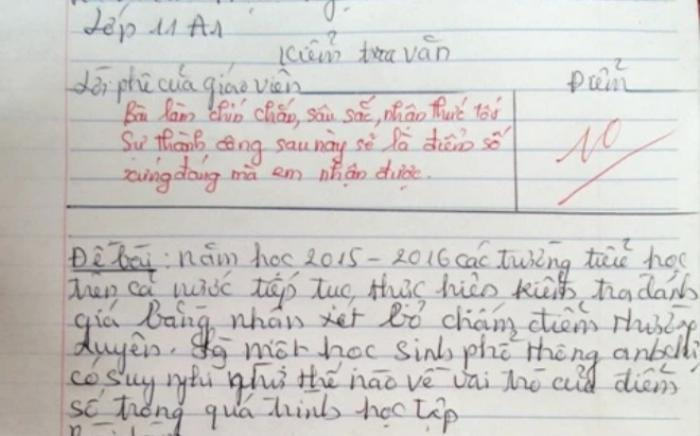 Lớp 11 A1
Kiểm tra văn
Lời phê của giáo viên
Điểm
Bài làm chín chắn, sâu sắc, nhận thức tốt
Sự thành công sau này sẽ là điểm số
xứng đáng mà em nhận được.
10
Đề bài: năm học 2015 - 2016 các trường tiểu học
trên cả nước tiếp tục thực hiện kiểm tra đánh
giá bằng nhận xét bỏ chấm điểm thường
xuyên. Là một học sinh phổ thông anh chị
có suy nghĩ như thế nào về vai trò của điểm
số trong quá trình học tập